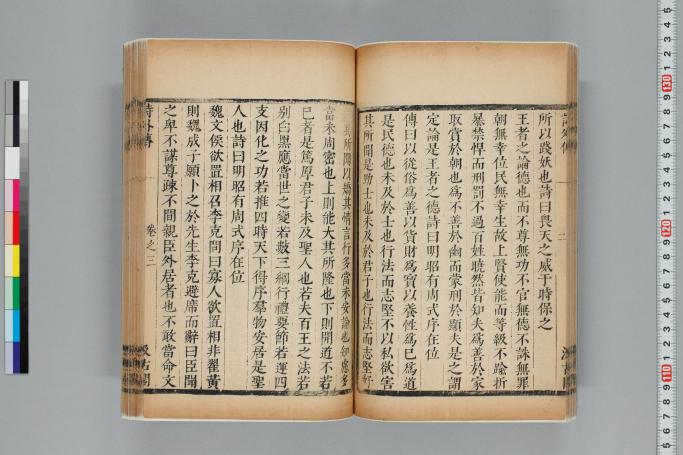 所以踐妖也詩曰畏天之威于時保之
王者之論德也而不尊無功不官無德不誅無罪
朝無幸位民無幸生故上賢使能而等級不踰折
暴禁悍而刑罰不過百姓曉然皆知夫為善於家
取賞於朝也為不善於幽而蒙刑於顯夫是之謂
定論是王者之德詩曰明昭有周式序在位
傳曰以從俗為善以貨財為寶以養性為已為道
是民德也未及於士也行法而志堅不以私欲害
其所聞是勁士也未及於君子也行法而志堅好
其所聞以矯其情言行多當未安諭也知慮多
當未周密也上則能大其所隆也下則開道不若
已者是篤厚君子未及聖人也若夫百王之法若
別白黑應當世之變若數三綱行禮要節若運四
支因化之功若推四時天下得序羣物安居是聖
人也詩曰明昭有周式序在位
魏文侯欲置相召李克問曰寡人欲置相非翟黃
則魏成子願卜之於先生李克避席而辭曰臣聞
之卑不謀尊疎不間親臣外居者也不敢當命文
詩外傳
卷之三
汲古閣
10
11
12
13